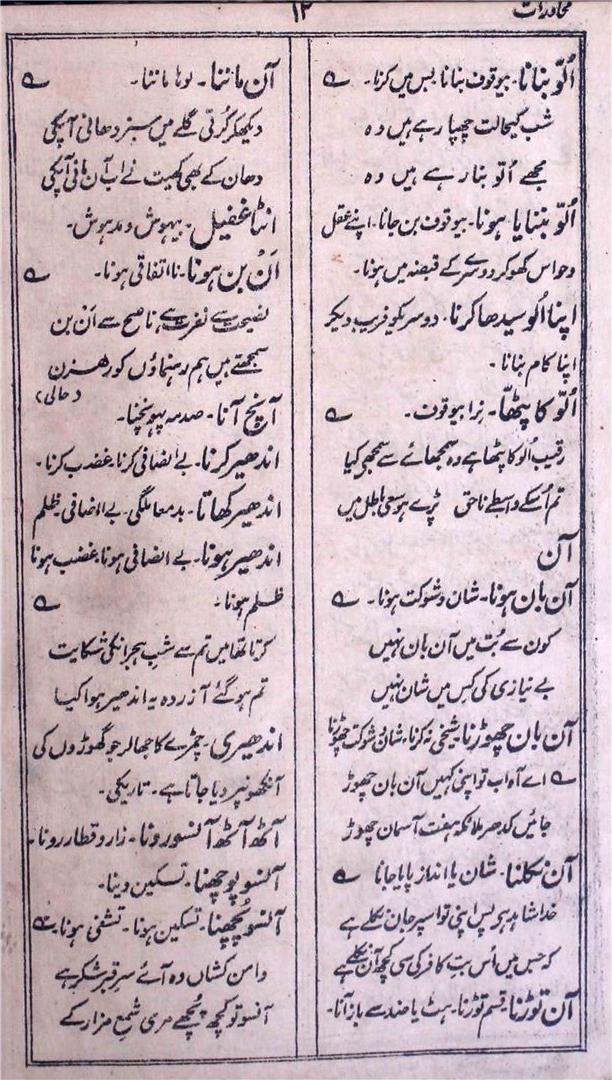 محاورات
۱۲
اُلّو بنانا۔ بیوقوف بنانا۔ بس میں کرنا۔ ؎
شب کیحالت چھپا رہے ہیں وہ
مجھے اُلّو بنا رہے ہیں وہ
اُلّو بننایا ہونا۔ بیوقوف بن جانا۔ اپنے عقل
وحواس کھوکر دوسرے کے قبضہ میں ہونا۔
اپنا اُلو سیدھا کرنا۔ دوسریکو فریب دیکر
اپنا کام بنانا۔
اُلّو کا پٹھّا۔ نِرا بیوقوف۔ ؎
رقیب اُلو کا پٹھا ہے وہ سمجھائے سے سمجھے کیا
تم اُسکے واسطے ناحق پڑے ہو سعی باطل میں
آن
آن بان ہونا۔ شان و شوکت ہونا۔ ؎
کون سے بُت میں آن بان نہیں
بے نیازی کی کس میں شان نہیں
آن بان چھوڑنا۔ شیخی نہ کرنا۔ شان و شوکت چھوڑنا
؎ اے آہ اب تو اپنی کہیں آن بان چھوڑ
جائیں کدھر ملائکہ ہفت آسمان چھوڑ
آن نکلنا۔ شان یا انداز پایا جانا ؎
خدا شاہد ہے بس اپنی تو اسپر جان نکلے ہے
کہ جس میں اُس بت کافر کی سی کچھ آن نکلے ہے
آن توڑنا۔ قسم توڑنا۔ ہٹ یا ضد سے باز آنا۔
آن ماننا۔ لوہا ماننا۔ ؎
دیکھکر کُرتی گلے میں سبز دھانی آپکی
دھان کے بھی کھیت نے اب آن مانی آپکی
انٹا غفیل۔ بیہوش و مدہوش۔
اَن بن ہونا۔ نا اتفاقی ہونا۔ ؎
نصیحت سے نفرت ہے ناصح سے اَن بن
سمجھتے ہیں ہم رہنماؤں کو رہزن
(حالی)
آنچ آنا۔ صدمہ پہونچنا۔
اندھیر کرنا۔ بے انصافی کرنا۔ غضب کرنا۔
اندھیر کھاتا۔ بدمعاملگی۔ بے انصافی۔ ظلم
اندھیر ہونا۔ بے انصافی ہونا۔ غضب ہونا
ظلم ہونا۔ ؎
کرتا تھا میں تم سے شب ہجرانکی شکایت
تم ہو گئے آزردہ یہ اندھیر ہوا کیا
اندھیری۔ چمڑے کا جھالر جو گھوڑوں کی
آنکھونپر دیا جاتا ہے۔ تاریکی۔
آٹھ آٹھ آنسو رونا۔ زار و قطار رونا۔
آنسو پوچھنا۔ تسکین دینا۔
آنسو پُچھنا۔ تسکین ہونا۔ تشفی ہونا۔ ؎
دامن کشاں وہ آئے سر قبر شکر ہے
آنسو تو کچھ پُچھے مری شمع مزار کے